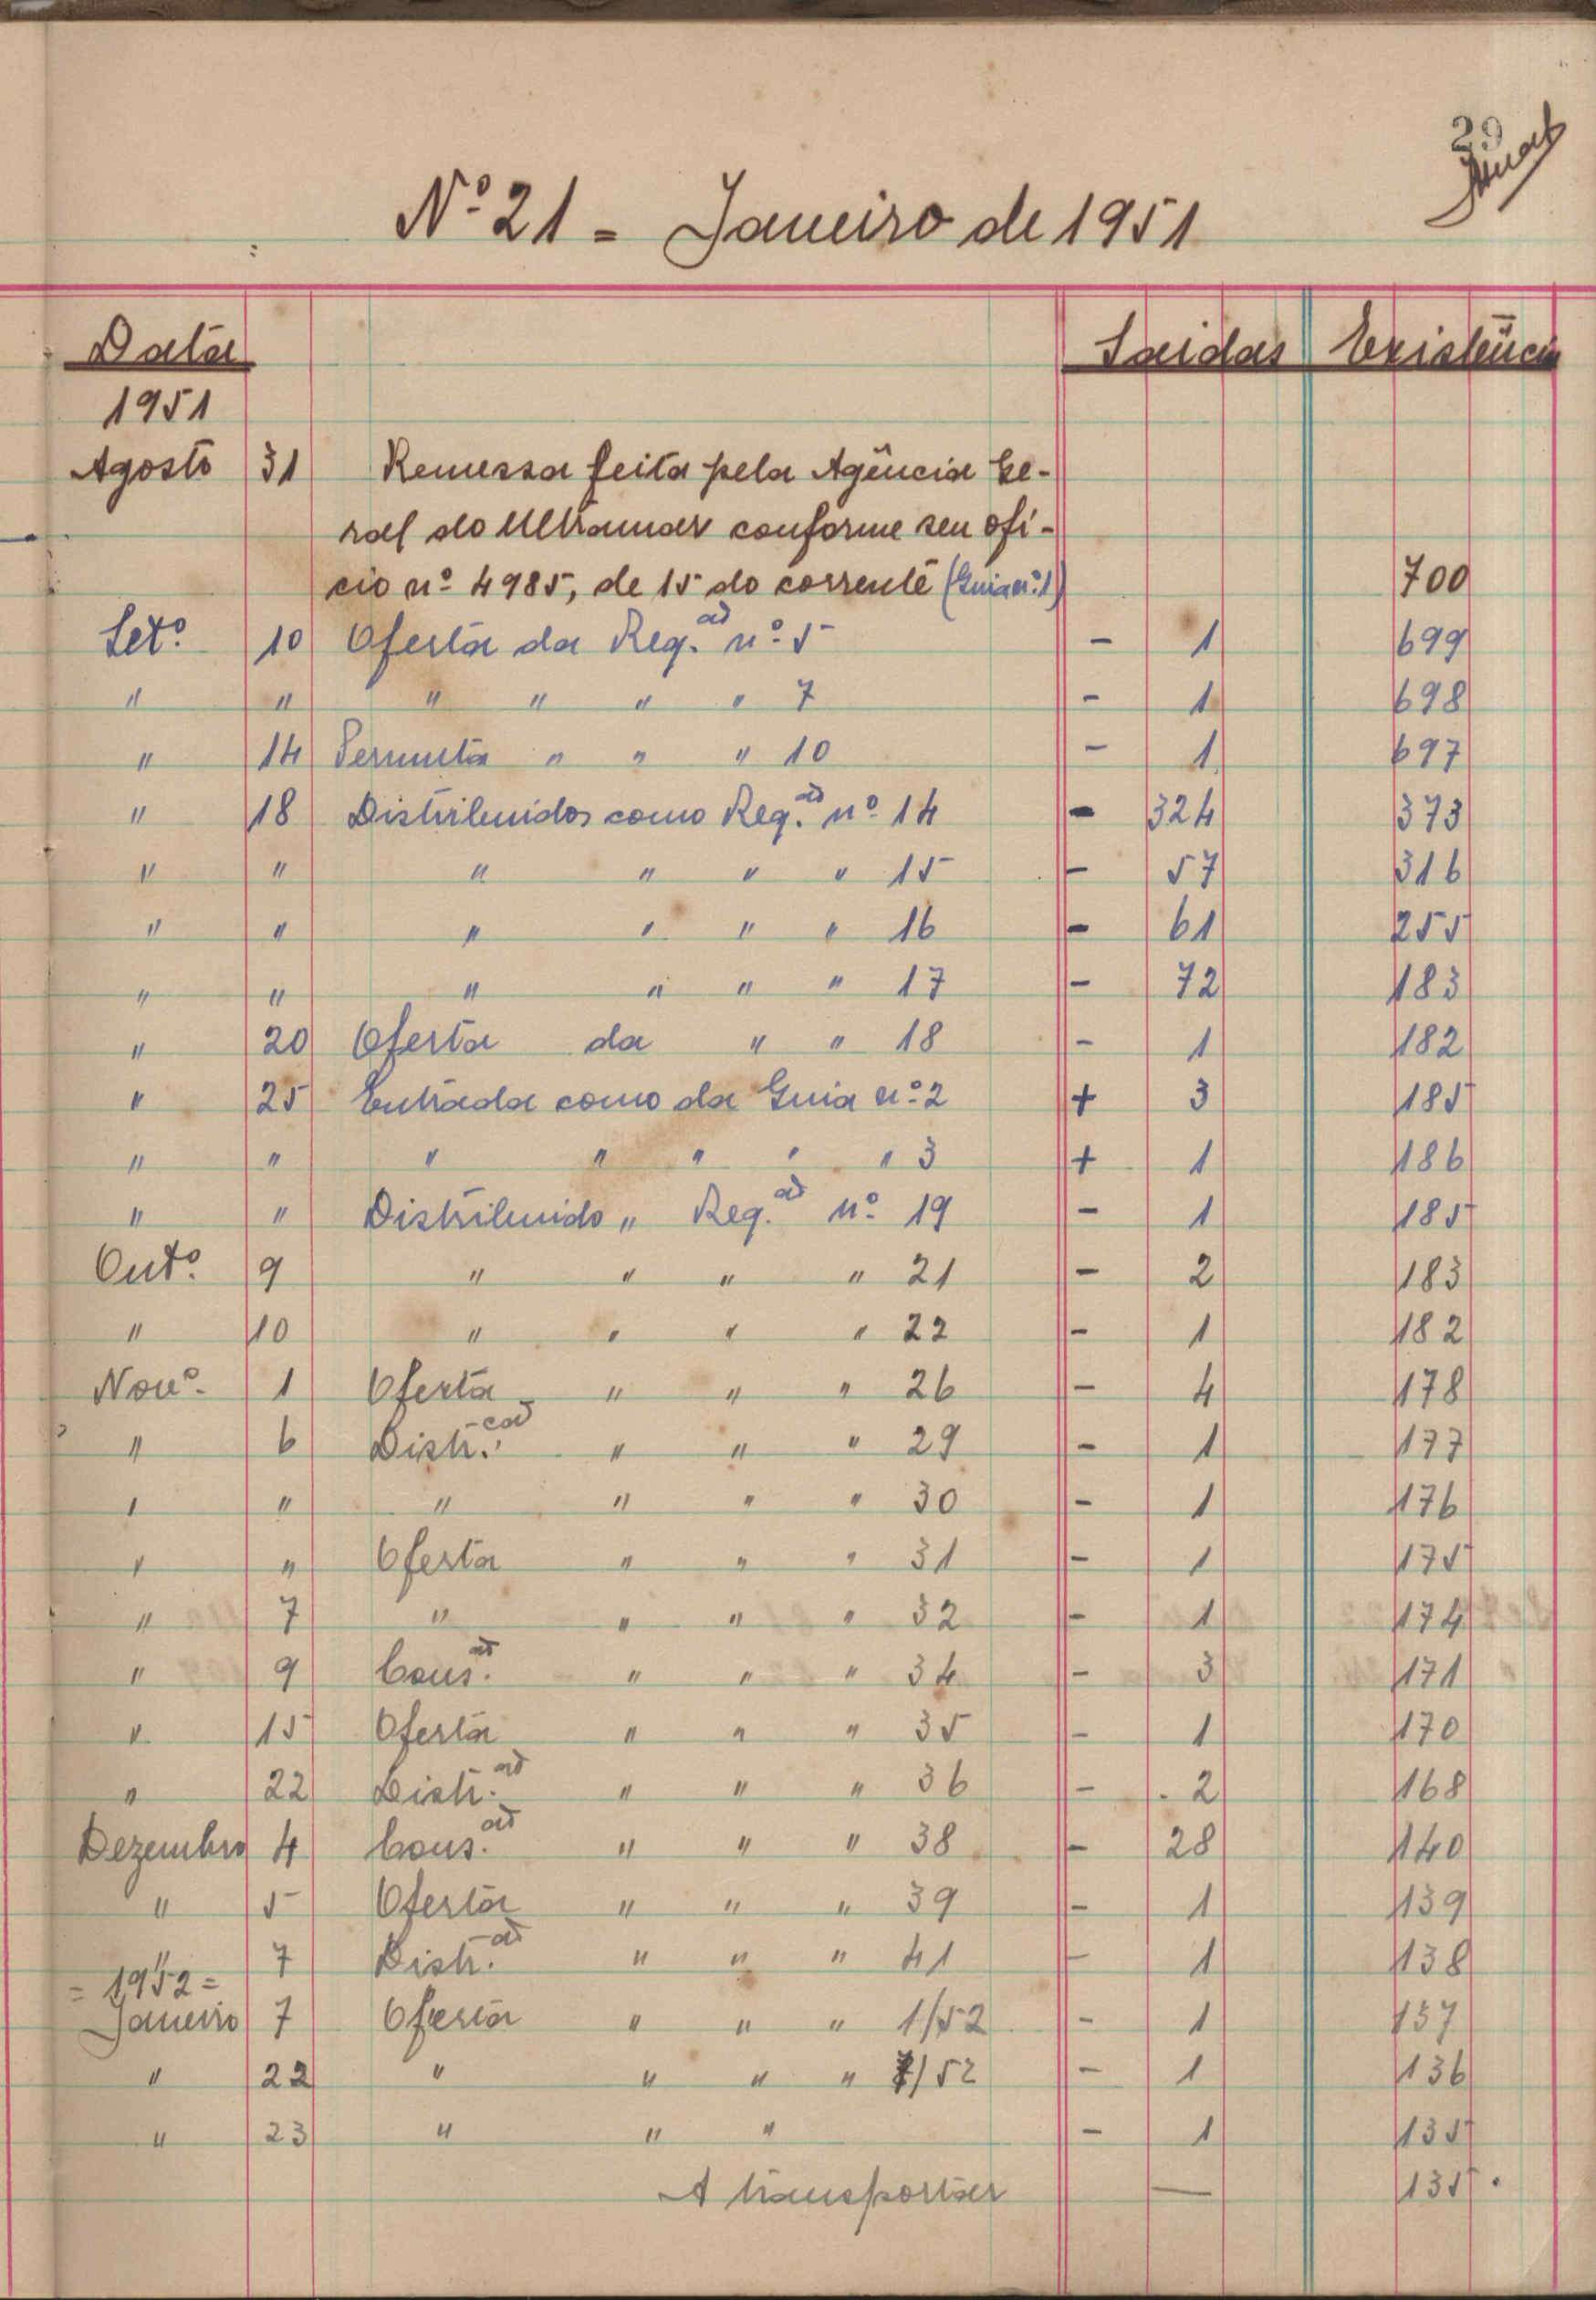 29
Nº 21 = Janeiro de 1951
Data Saidas Existência
1951
Agosto 31 Remessa feita pela Agência Ge-
ral do Ultramar conforme seu ofí-
cio nº 4985, de 15 do corrente (Guia nº 1) 700
Setº. 10 Oferta da Req.ão nº 5 - 1 699
" " " " " " 7 - 1 698
" 14 Permuta " " " 10 - 1 697
" 18 Distribuidos como Req.ão nº 14 - 324 373
" " " " " " 15 - 57 316
" " " " " " 16 - 61 255
" " " " " " 17 - 72 183
" 20 Oferta da " " 18 - 1 182
" 25 Entrada como da Guia nº 2 + 3 185
" " " " " " " 3 + 1 186
" " Distribuido " Req.ão nº 19 - 1 185
Outº. 9 " " " " 21 - 2 183
" 10 " " " " 22 - 1 182
Novº. 1 Oferta " " " 26 - 4 178
" 6 Distr.ção " " " 29 - 1 177
" " " " " " 30 - 1 176
" " Oferta " " " 31 - 1 175
" 7 " " " " 32 - 1 174
" 9 Cons.ão " " " 34 - 3 171
" 15 Oferta " " " 35 - 1 170
" 22 Distr.ão " " " 36 - 2 168
Dezembro 4 Cons.ão " " " 38 - 28 140
" 5 Oferta " " " 39 - 1 139
" 7 Distr.ão " " " 41 - 1 138
= 1952 =
Janeiro 7 Oferta " " " 1/52 - 1 137
" 22 " " " " /52 - 1 136
" 23 " " " - 1 135
A transportar — 135.